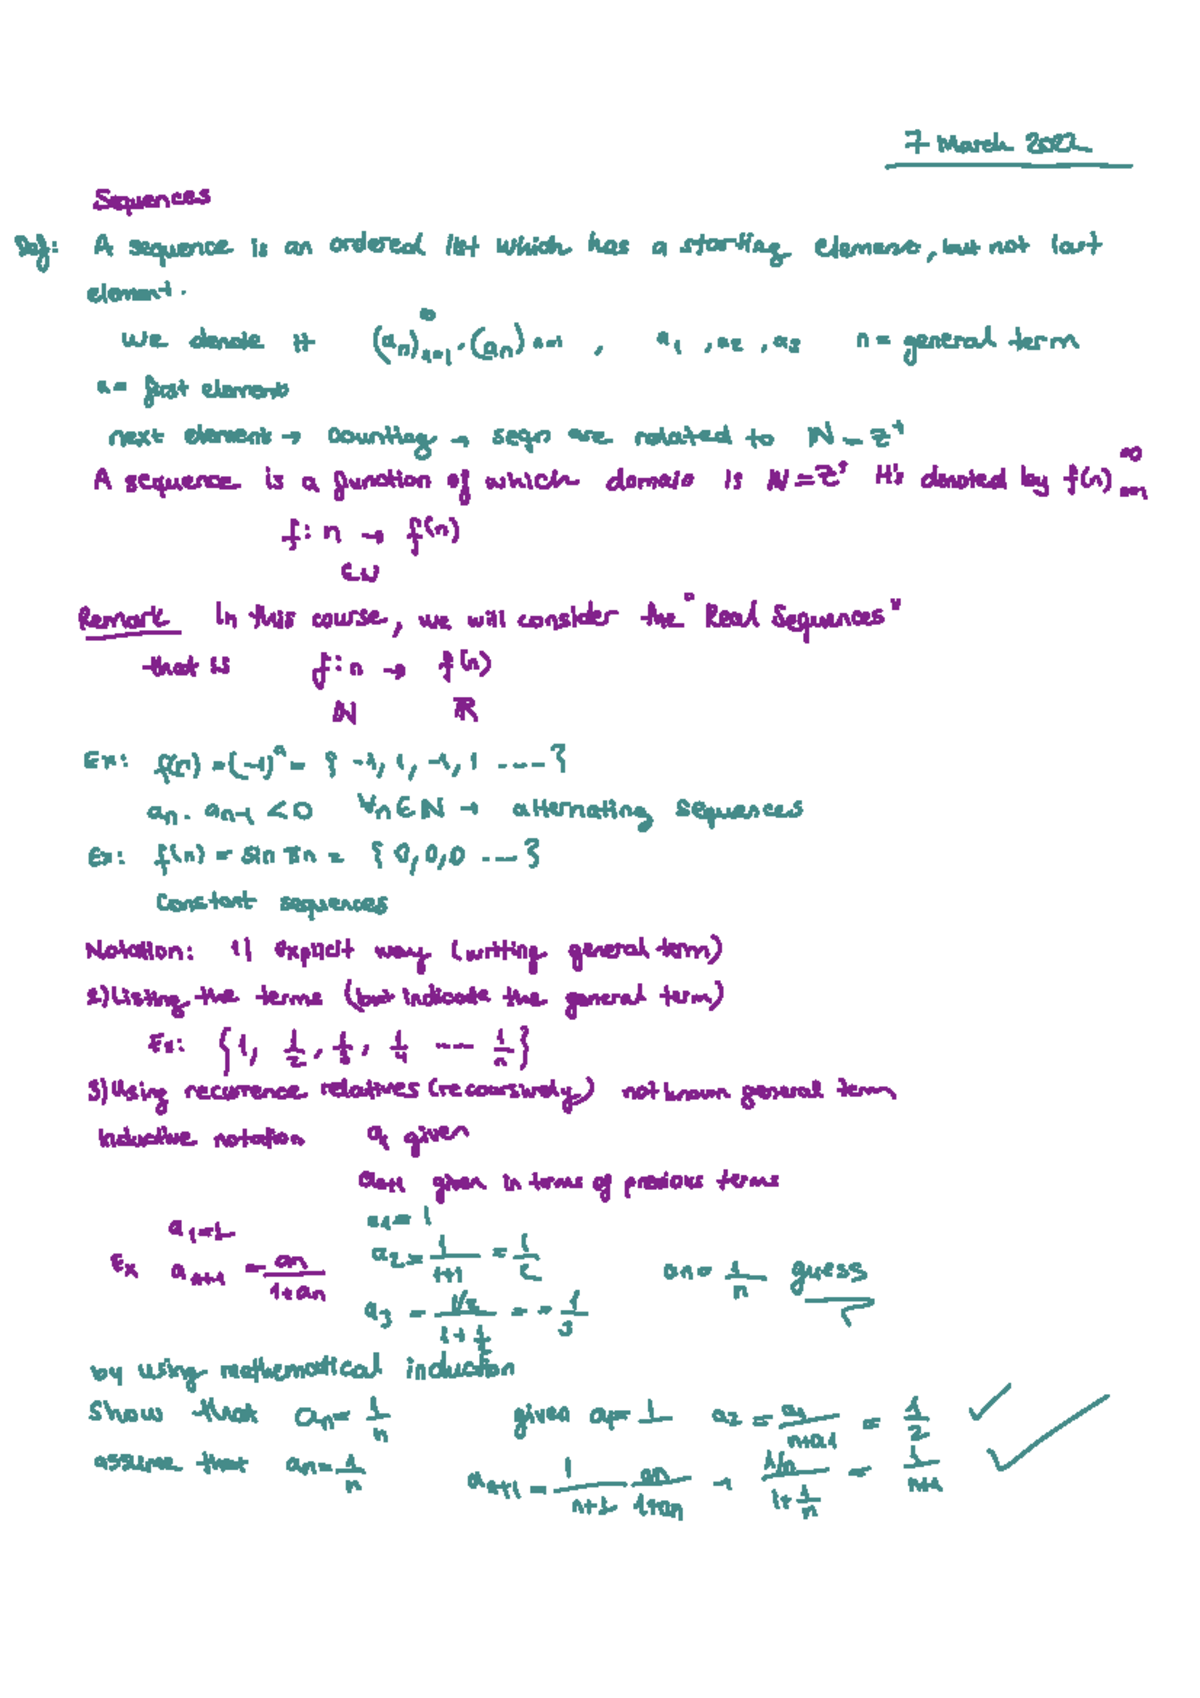 7 March 2022
Sequences
Def: A sequence is an ordered list which has a starting element, but not last
element.
We denote it (an)ₙ₌₁^∞ , (an) n=1 , a1 , a2 , a3 n = general term
a = first element
next element → counting → seqn are related to ℕ = Z⁺
A sequence is a function of which domain is ℕ = Z⁺ It's denoted by f(n)ₙ₌₁^∞
f: n → f(n)
∈ℕ
Remark In this course, we will consider the "Real Sequences"
that is f: n → f(n)
ℕ ℝ
Ex: f(n) = (-1)ⁿ = { -1, 1, -1, 1 ---- }
an . an-1 < 0 ∀n ∈ ℕ → alternating sequences
Ex: f(n) = sin πn = { 0, 0, 0 --- }
Constant sequences
Notation: 1) explicit way (writing general term)
2) Listing the terms (but indicate the general term)
Ex: { 1, 1/2, 1/3, 1/4 ---- 1/n }
3) Using recurrence relatives (recoursively) not known general term
Inductive notation a1 given
an+1 given in terms of previous terms
Ex a1=1 an+1 = an/(1+an)
a1 = 1
a2 = 1/(1+1) = 1/2 an = 1/n guess
a3 = (1/2)/(1+1/2) = = 1/3
by using mathematical induction
Show that an = 1/n given a1 = 1 a2 = = 1/2 ✓
assume that an = 1/n an+1 = 1/(n+1) an/(1+an) → (1/n)/(1+1/n) = 1/(n+1) ✓